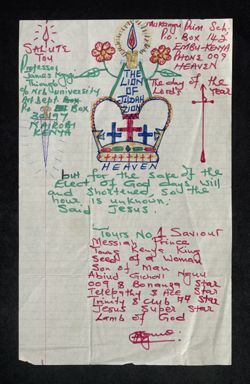 SALUTE
TOY
Professor
James Ngugi
Thiong'o
c/o Nrb/university
Art Dept. Box
P.O. Box
30197
NAIROBI
KENYA
Prim Sch.
P.O. Box 142
EMBU-KENYA
PHONE 009
HEAVEN
The day of the
Lord's Year
THE
LION
OF
JUDAH
ZION
HEAVEN
but for the sake of the
Elect of God days will
and shortened, so the
hour is unknown.
Said Jesus.
Yours No. 1 Saviour
Messiah Prince
Kenya King
Seed of a Woman
Son of Man
Abiud Gichohi Nguu
009 & Bonanga Star
Telepathy & Ace Star
Trinity & Club 77 Star
Jesus Super Star
Lamb of God